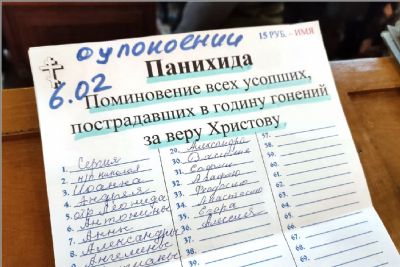 о упокоении
15 РУБ. – ИМЯ
6.02
Панихида
Поминовение всех усопших,
пострадавших в годину гонений
за веру Христову
1. Сергия
2. Николая
3. Иоанна
4. Андрея
5. Леонида
6. Антонины
7. Анны
8. Александры
9. Ангелины
29. Александра
30. Валентине
31.
32.
33.
34. Анастасию
35.
36. Алексея
37.
38.
39.
40.
57.
58.
59.
60.
61.
62.
63.
64.
65.
66.
67.
68.
69.